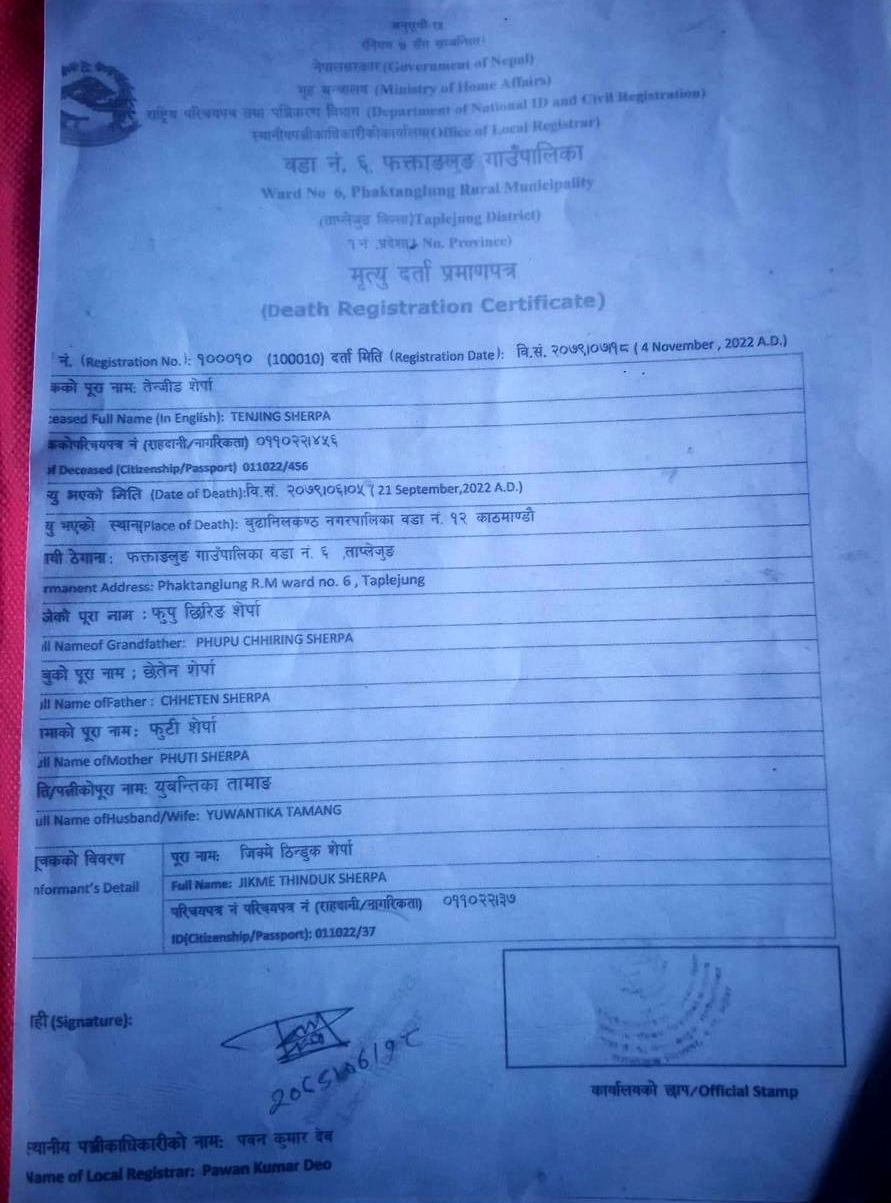 अनुसूची-१३
नेपालसरकार(Government of Nepal)
गृह मन्त्रालय (Ministry of Home Affairs)
राष्ट्रिय परिचयपत्र तथा पञ्जिकरण विभाग (Department of National ID and Civil Registration)
स्थानीयपञ्जीकाधिकारीकोकार्यालय(Office of Local Registrar)
वडा नं. ६, फक्ताङलुङ गाउँपालिका
Ward No 6, Phaktanglung Rural Municipality
(ताप्लेजुङ जिल्ला)Taplejung District)
१ नं .प्रदेश(1 No. Province)
मृत्यु दर्ता प्रमाणपत्र
(Death Registration Certificate)
नं. (Registration No.): १०००१० (100010) दर्ता मिति (Registration Date): वि.सं. २०७९।०७।१८ ( 4 November , 2022 A.D.)
कको पूरा नाम: तेन्जीङ शेर्पा
eased Full Name (In English): TENJING SHERPA
ककोपरिचयपत्र नं (राहदानी/नागरिकता) ०११०२२।४५६
of Deceased (Citizenship/Passport) 011022/456
यु भएको मिति (Date of Death):वि.सं. २०७९।०६।०५ ( 21 September,2022 A.D.)
यु भएको स्थान(Place of Death): बुढानिलकण्ठ नगरपालिका वडा नं. १२ काठमाण्डौ
ायी ठेगाना : फक्ताङलुङ गाउँपालिका वडा नं. ६ ,ताप्लेजुङ
rmanent Address: Phaktanglung R.M ward no. 6 , Taplejung
जेको पूरा नाम : फुपु छिरिङ शेर्पा
ull Nameof Grandfather: PHUPU CHHIRING SHERPA
बुको पूरा नाम ; छेतेन शेर्पा
ull Name ofFather : CHHETEN SHERPA
ामाको पूरा नाम: फुटी शेर्पा
ull Name ofMother PHUTI SHERPA
ति/पत्नीकोपूरा नाम: युबन्तिका तामाङ
ull Name ofHusband/Wife: YUWANTIKA TAMANG
ूचकको विवरण
nformant's Detail
पूरा नाम: जिक्मे ठिन्डुक शेर्पा
Full Name: JIKME THINDUK SHERPA
परिचयपत्र नं परिचयपत्र नं (राहदानी/नागरिकता) ०११०२२।३७
ID(Citizenship/Passport): 011022/37
ही (Signature):
कार्यालयको छाप/Official Stamp
स्थानीय पञ्जीकाधिकारीको नाम: पवन कुमार देव
Name of Local Registrar: Pawan Kumar Deo